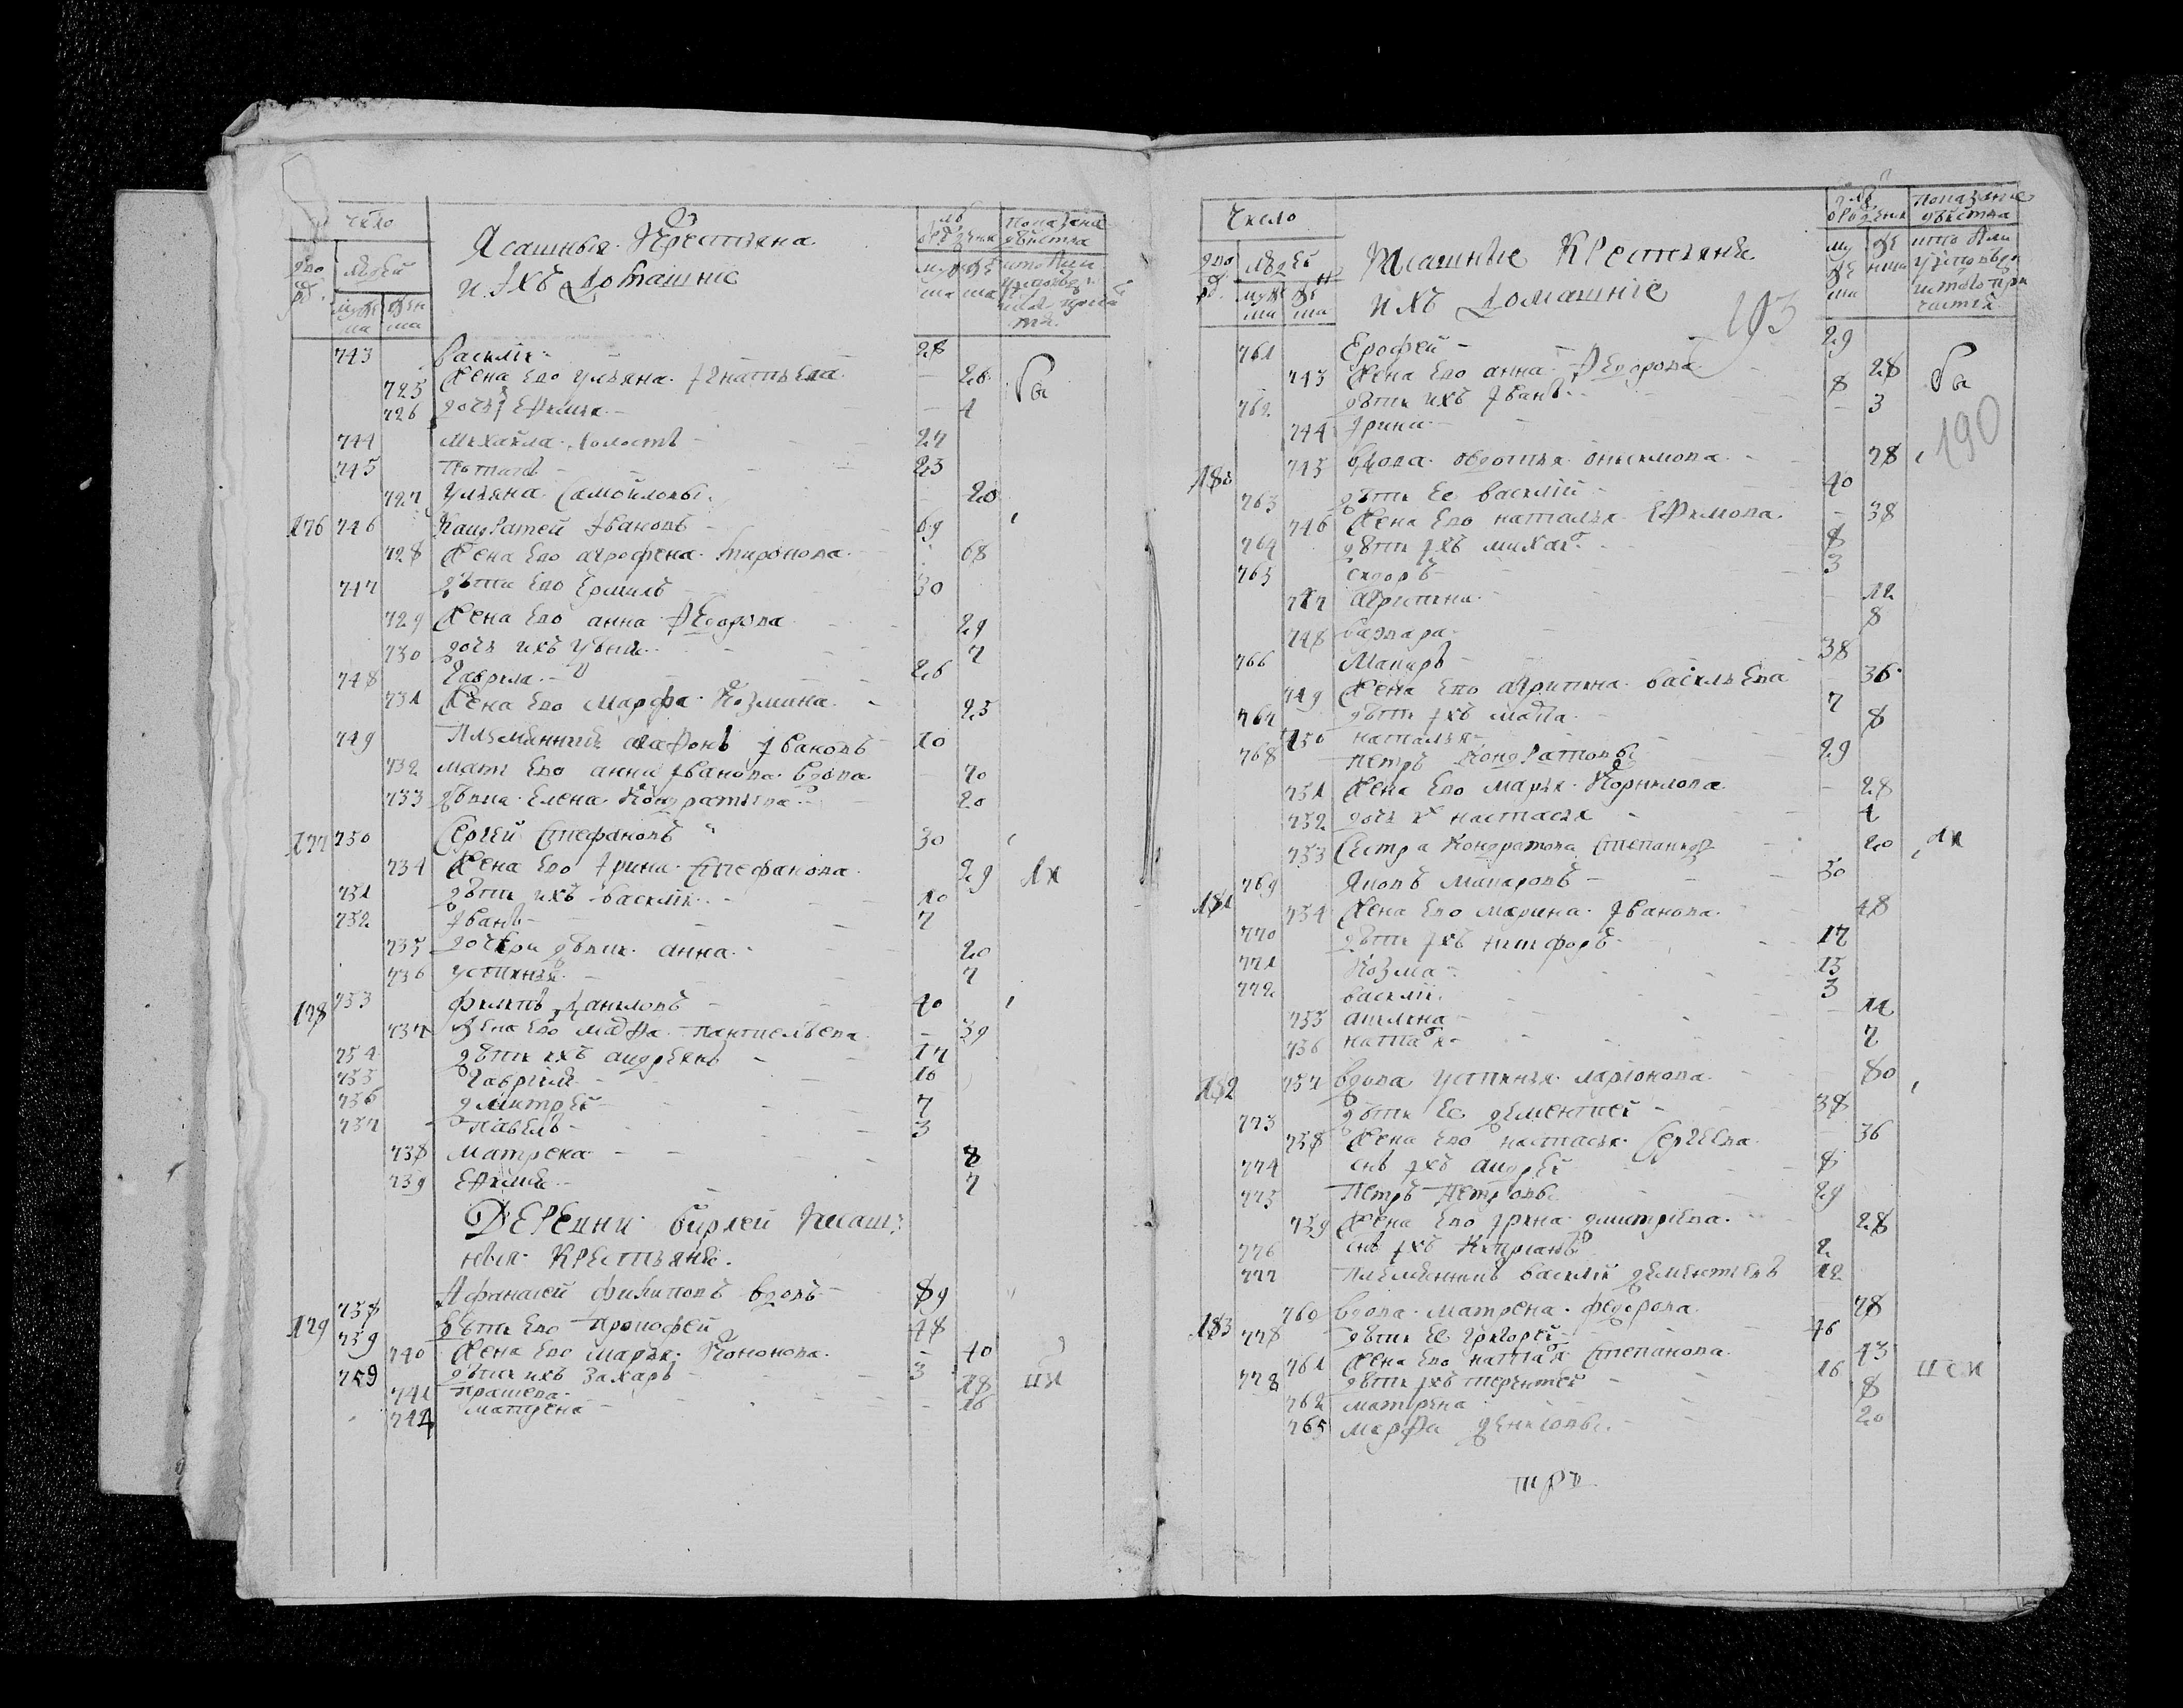 число
дворовъ
людей
мужеска
женска
Ясашныя Крестьяна
и Ихъ Домашніе
лѣ
Показаніе
743 василій 28
725 жена Ево Ульяна Ігнатьева 26
726 дочь Ефимья 1
бы
744 михайла холостъ 27
745 потапъ 23
727 Ульяна Самойловы 20
176 746 Кандратей Iвановъ 69
728 жена Ево агрофена миронова 68
747 дѣти Ево Ермилъ 30
729 жена Ево анна Ѳедорова 29
730 дочь ихъ 7
748 Гаврила 26
731 жена Ево марфа Козмина 25
749 племянникъ агафонъ Iвановъ 10
732 мать Ево анна Iванова вдова 70
733 дѣвка Елена Кондратьева 20
177 750 Сергей Стефановъ 30
734 жена Ево Iрина Стефанова 29
751 дѣти ихъ василій 10
752 Iванъ 7
735 дочери дѣвки анна 20
736 устинья 7
178 753 филипъ Даниловъ 40
737 жена Ево Пантиелѣева 39
754 дѣти ихъ андреянъ 17
755 Гаврила 10
756 дмитрей 7
757 павелъ 3
738 матрена 8
739 Ефимия 7
ДЕРЕвни бирлей Ясаш:
ныя КРЕстьянѣ.
738 Афанасей филиповъ вдовъ 89
179 759 дѣти Ево Прокофей 48
740 жена Ево марья Кононова 40
759 дѣти ихъ Захаръ 3
741 прасковья 18
742 матрена 16
Число
дворовъ
людей
Ясашные КРестьяня
ихъ Домашніе
Показаніе
193
190
761 Ерофей 29
743 жена Ево анна Ѳедорова 28
762 дѣти ихъ Iванъ 8
744 Iрина 3
бы
180 745 вдова овдотья онисимова 78
763 дѣти Ее василій 40
746 жена Ево наталья Ефимова 38
764 дѣти Iхъ михай 8
765 сидоръ 3
747 агрипина 12
748 варвара 8
766 Макаръ 38
749 жена Ево агрипина васильева 36
767 дѣти Iхъ 7
750 наталья 8
768 петръ Кондратовъ 29
751 жена Ево марья Корнилова 28
752 дочь их настасья 1
753 Сестра Кондратова Степанида 20
181 769 Яковъ макаровъ 50
754 жена Ево марина Iванова 48
770 дѣти Iхъ никифоръ 17
771 Козма 15
772 василій 3
755 акилина 11
756 7
182 757 вдова устинья ларионова 80
773 дѣти Ее дементей 38
758 жена Ево настасья Сергѣева 36
774 снъ Iхъ андрей 8
775 Петръ Петровъ 29
759 жена Ево Iрина дмитриева 28
776 снъ Iхъ Киприанъ 2
777 племянникъ василій дементьевъ 12
183 760 вдова матрена федорова 78
778 дѣти Ее григорей 46
761 жена Ево Степанова 43
778 дѣти Iхъ терентей 16
762 матрена 8
765 марфа 20